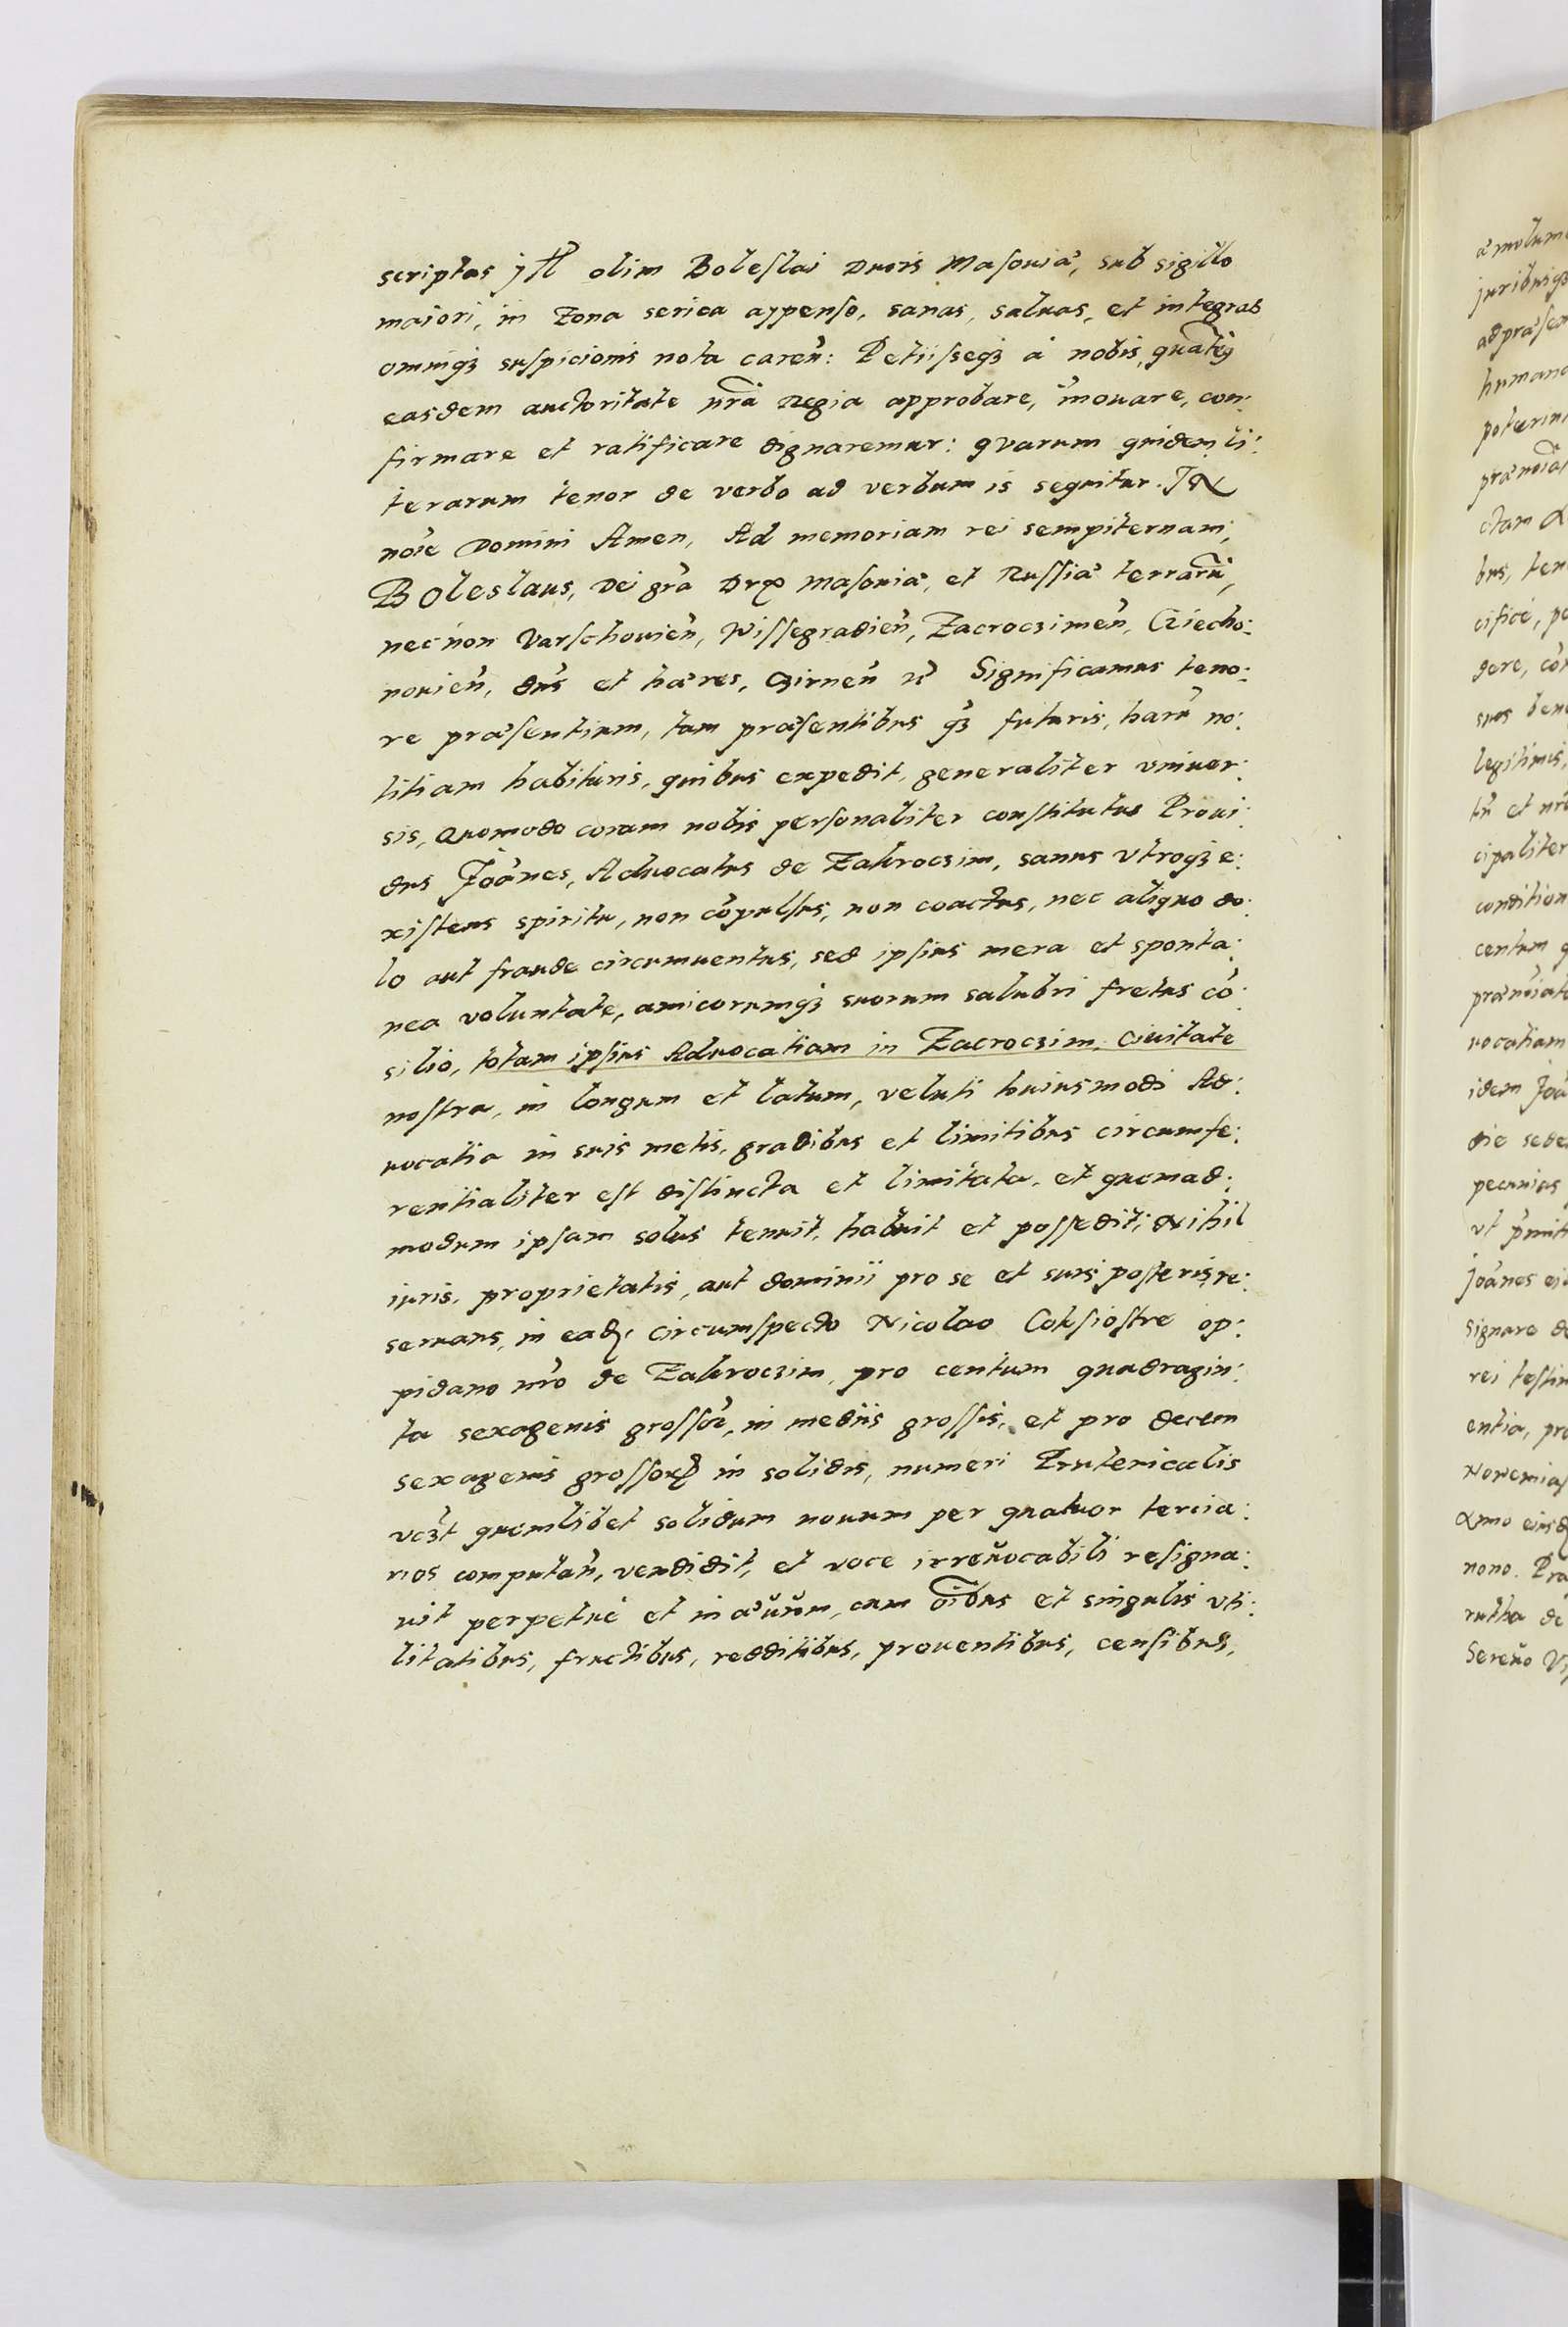 scriptas Ill olim Boleslai Ducis Masouiæ, sub sigillo
maiori, in Zona serica appenso, sanas, saluas, et integras
omniq₃ suspicionis nota careñ: Petiisseq₃ à nobis, quateñ
easdem auctoritate nr̃a Regia approbare, iñouare, con:
firmare et ratificare dignaremur: qvarum quidem li:
terarum tenor de verbo ad verbum is sequitur. IN
noïe Domini Amen, Ad memoriam rei sempiternam,
BOleslaus, Dei gr̃a Dvx Masouiæ, et Russiæ terrarũ,
nec non Varschouieñ, Wissegradieñ, Zacroczimeñ, Ciecho:
nouieñ, dñs et hæres, Czirneñ &c. Significamus teno:
re præsentium, tam præsentibus q₃ futuris, harũ no:
titiam habituris, quibus expedit, generaliter vniuer:
sis, Quomodo coram nobis personaliter constitutus Proui:
dus Joãnes, Aduocatus de Zakroczim, sanus vtroq₃ e:
xistens spiritu, non cõpulsus, non coactus, nec aliquo do:
lo aut fraude circumuentus, sed ipsius mera et sponta:
nea voluntate, amicorumq₃ suorum salubri fretus cõ:
silio, totam ipsius Aduocatiam in Zacroczim, Ciuitate
nostra, in longum et latum, veluti huiusmodi Ad:
uocatia in suis metis, gradibus et limitibus circumfe:
rentialiter est distincta et limitata, et quemad:
modum ipsam solus tenuit, habuit et possedit, Nihil
iuris, proprietatis, aut dominii pro se et suis posteris re:
seruans, in eadẽ, Circumspecto Nicolao Coksiostre op:
pidano nr̃o de Zakroczim, pro centum quadragin:
ta sexagenis grossoꝝ, in mediis grossis, et pro decem
sexagenis grossoꝝ in solidis, numeri Prutenicalis
vc₃t quemlibet solidum nouum per quatuor tercia:
rios computañ, vendidit, et voce irreuocabili resigna:
uit perpetuè et in æuũm, cum oĩbus et singulis vti:
litatibus, fructibus, redditibus, prouentibus, censibus,